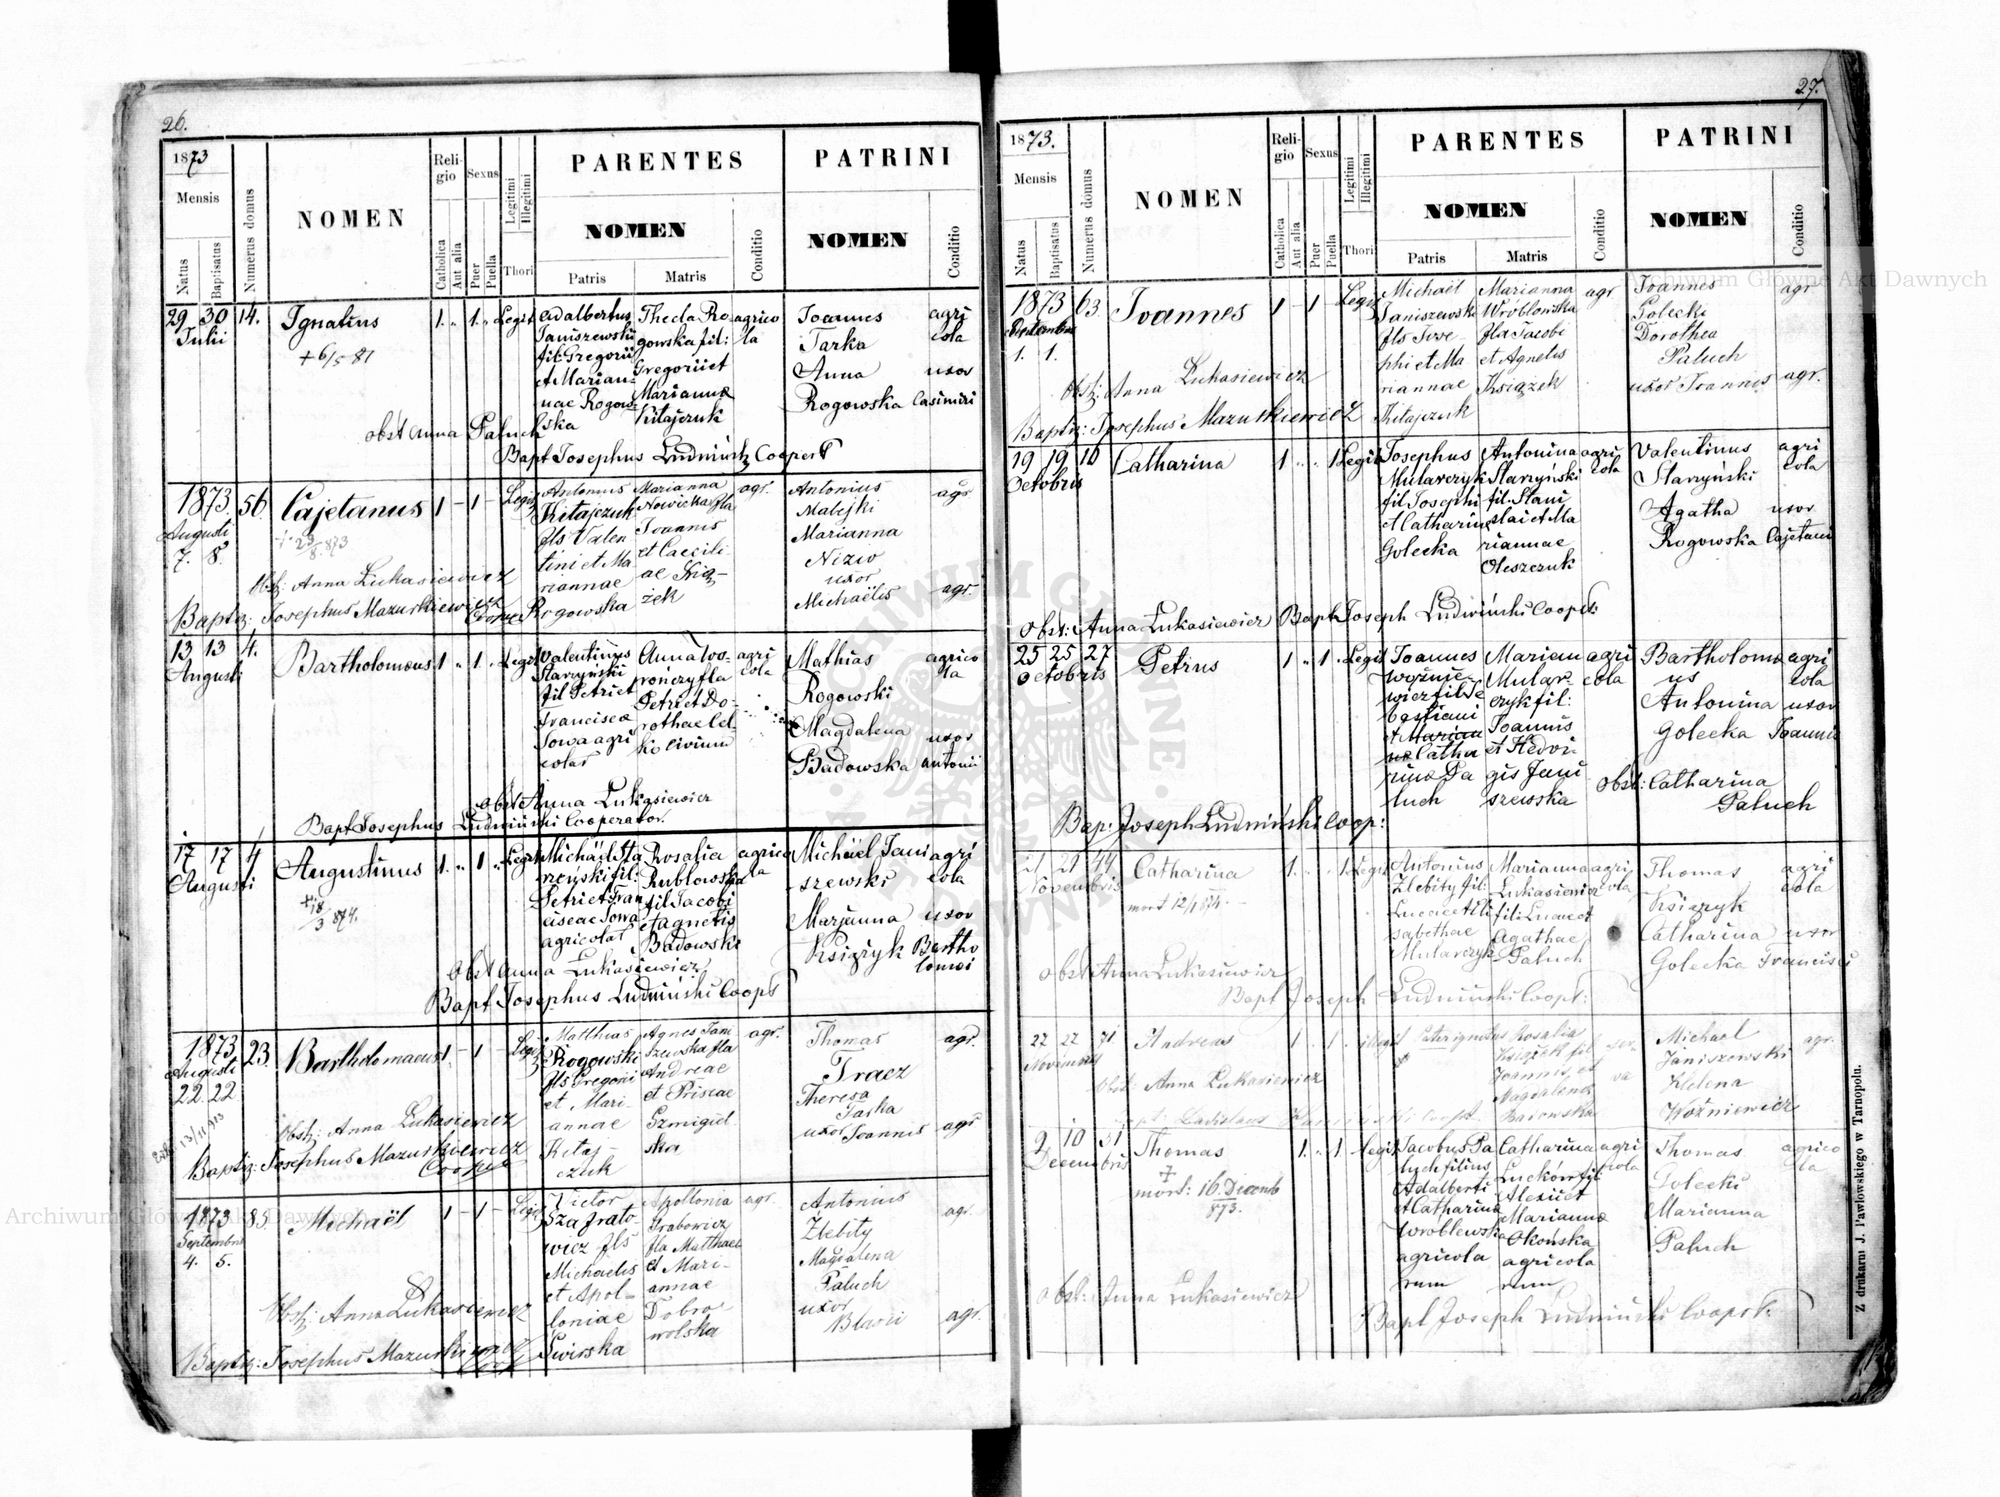 26.
1873
Mensis
Natus
Baptisatus
Numerus domus
NOMEN
Religio
Catholica
Aut alia
Sexus
Puer
Puella
Legitimi
Illegitimi
Thori
PARENTES
NOMEN
Patris
Matris
Conditio
PATRINI
NOMEN
Conditio
29 30 14.
Julii
Ignatius
1. „ 1. „ Legit
Adalbertus
Janiszewski
fil Gregorii
et Marian-
nae Rogow-
ska
Thecla Ro
gowska fil:
Gregorii et
Marianna
Kitajczuk
agrico
la
Joannes
Tarka
Anna
Rogowska
agri
cola
uxor
Casimiri
obst Anna Paluch
Bapt Josephus
1873 56
Augusti
7. 8.
Cajetanus
1 - 1 - Legit
Antonius
Kitajczuk
fls Valen
tini et Ma
riannae
Rogowska
Marianna
Nowicka fla
Joannis
et Caecili
ae Książ-
żek
agr.
Antonius
Matejki
Marianna
Nizio
uxor
Michaëlis
agr.
agr.
Obst: Anna Łukasiewicz
Baptiz: Josephus Mazurkiewicz
13 13 4.
Augusti
Bartholomeus
1 „ 1 . Legit
Valentinus
Starzyński
fil Petri et
Francisca
Sowa agri
colar
Anna
fla
Petri et Do-
rothae
civium
agri
cola
Mathias
Rogowski
Magdalena
Badowska
agrico
la
uxor
Antonii
obst Anna Łukasiewicz
Bapt Josephus Ludwiński Cooperator.
17 17 4
Augusti
Augustinus
+ 18/3 874.
1. „ 1 „ Legit
Michäel Sta
rzyński fil:
Petri et Fran
ciscae Sowa
agricolar
Rosalia
fil Jacobi
et Agnetis
Badowski
agrico
la
Michäel Jani
szewski
Marjanna
Książyk
agri
cola
uxor
Bartho
lomei
obst Anna Łukasiewicz
Bapt Josephus Ludwiński Coopt
1873 23
Augusti
22. 22
Bartholomaeus
1 - 1 - Legit
Matthias
Rogowski
fls Gregorii
et Mari-
annae
Kitaj-
czuk
Agnes Jani
szewska fla
Andreae
et Priscae
Szmigiel
ska
agr.
Thomas
Tracz
Theresa
Tarka
uxor Joannis
agr.
agr
Obst: Anna Łukasiewicz
Baptiz: Josephus Mazurkiewicz
1873 85
Septembris
4. 5.
Michaël
1 - 1 - Legit
Victor
Szafrato-
wicz fls
Michaelis
et Apol-
loniae
Świrska
Apollonia
Grabowicz
fla Matthaei
et Mari-
annae
Dobro
wolska
agr.
Antonius
Zlebity
Magdalena
Paluch
uxor
Blasii
agr.
agr.
Obst: Anna Łukasiewicz
Baptiz: Josephus Mazurkiewicz
27.
1873.
Mensis
Natus
Baptisatus
Numerus domus
NOMEN
Religio
Catholica
Aut alia
Sexus
Puer
Puella
Legitimi
Illegitimi
Thori
PARENTES
NOMEN
Patris
Matris
Conditio
PATRINI
NOMEN
Conditio
1873 63.
1. 1.
Joannes
1 - 1 Legit
Michaël
Janiszewski
fls Jose
phi et Ma
riannae
Kitajczuk
Marianna
Wróblowska
fla Jacobi
et Agnetis
Książek
agr
Joannes
Golecki
Dorothea
Paluch
uxor Joannis
agr
agr.
Obst: Anna Łukasiewicz
Baptiz: Josephus Mazurkiewicz
19 19 16
Octobris
Catharina
1 „ „ 1 Legit
Josephus
Mularczyk
fil Josephi
et Catharina
Golecka
Antonina
Starzyński
fil. Stani
slai et Ma
riannae
Oleszczuk
agri
cola
Valentinus
Starzyński
Agatha
Rogowska
agri
cola
uxor
Cajetani
Obst: Anna Łukasiewicz Bapt Joseph Ludwiński Coopt:
25 25 27
Octobris
Petrus
1 „ 1 . Legit
Joannes
Woźnie-
wicz fil Se
bastiani
et
Catha
rina Pa
luch
Mariann
Mular-
czyk fil:
Joannis
et Hedvi
gis Jani
szewska
agri
cola
Bartholome
us
Antonina
Golecka
agri
cola
uxor
Joannis
obst: Catharina
Paluch
Bap: Joseph Ludwiński Coop:
21 21 44
Novembris
Catharina
1. „ . 1 Legit
Antonius
Zlebity fil:
Lucae et Eli
sabethae
Mularczyk
Marianna
Łukasiewicz
fil: Lucae et
Agathae
Paluch
agri
cola
Thomas
Książyk
Catharina
Golecka
agri
cola
uxor
Francisci
obst Anna Łukasiewicz
Bapt Joseph Ludwiński Coopt:
22 22 71
Novembris
Andreas
1 . 1 . illegit
Pater ignotus
Rosalia
Książek fil
Joannis et
Magdalena
Badowska
ser-
va
Michael
Janiszewski
Helena
Woźniewicz
agr.
Obst: Anna Łukasiewicz
9 10 31
Decembris
Thomas
+
mort: 16. Decemb
873.
1. „ 1 Legit
Jacobus Pa
luch filius
Adalberti
et Catharina
Wroblewska
agricola
rum
Catharina
fil:
Alexii et
Marianna
Okońska
agricola
rum
agri
cola
Thomas
Golecki
Marianna
Paluch
agrico
la
obst: Anna Łukasiewicz
Bapt Joseph Ludwiński Coopt:
Z drukarni J. Pawłowskiego w Tarnopolu.
Archiwum Główne Akt Dawnych
Archiwum Główne Akt Dawnych
ARCHIWUM GŁÓWNE